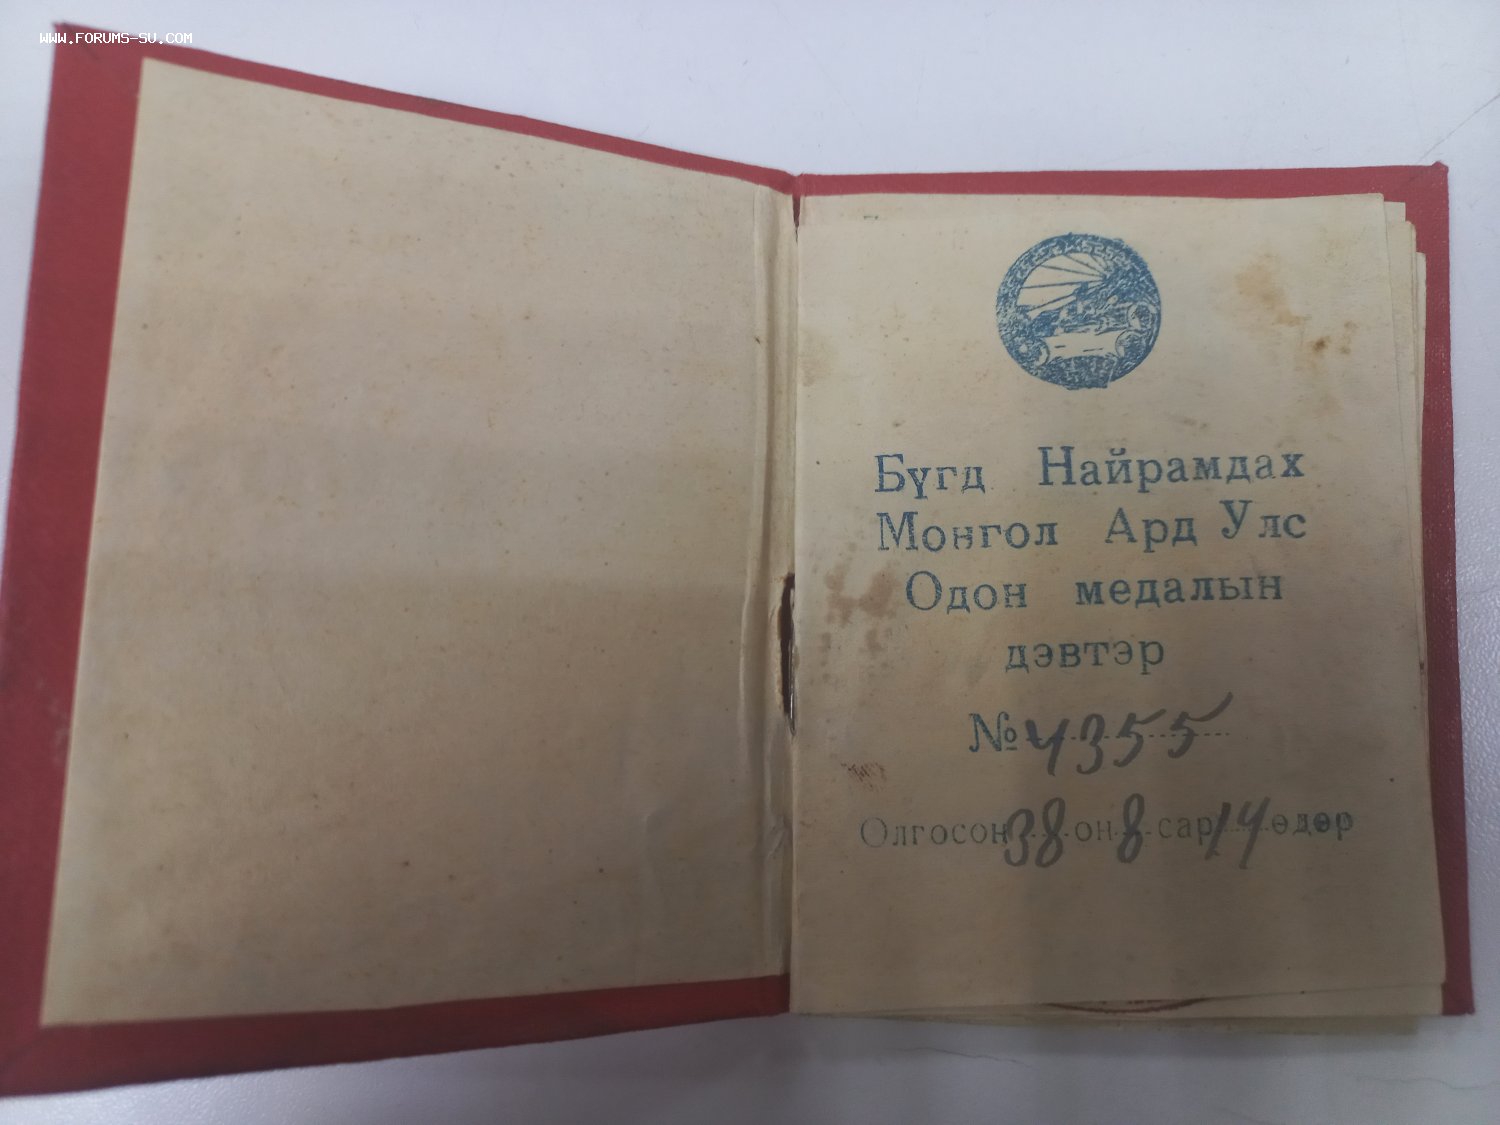 WWW.FORUMS-SU.COM
Бүгд Найрамдах
Монгол Ард Улс
Одон медалын
дэвтэр
№ 4355
Олгосон 38 он 8 сар 14 өдөр